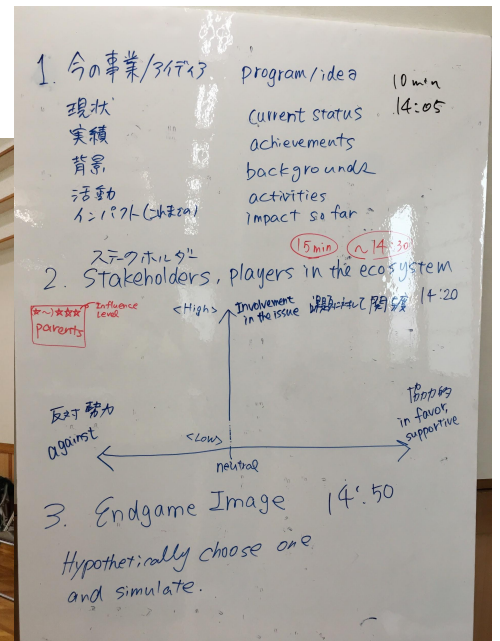 1. 今の事業/アイディア program/idea
10min
14:05
現状 current status
実績 achievements
背景 backgrounds
活動 activities
インパクト(これまでの) impact so far
15min ~14:30
ステークホルダー
2. Stakeholders, players in the ecosystem
14:20
☆~)☆☆☆ Influence Level
parents
<High> Involvement in the issue 課題に対して
反対勢力
against
<Low>
neutral
協力的
in favor,
supportive
3. Endgame Image 14:50
Hypothetically choose one
and simulate.